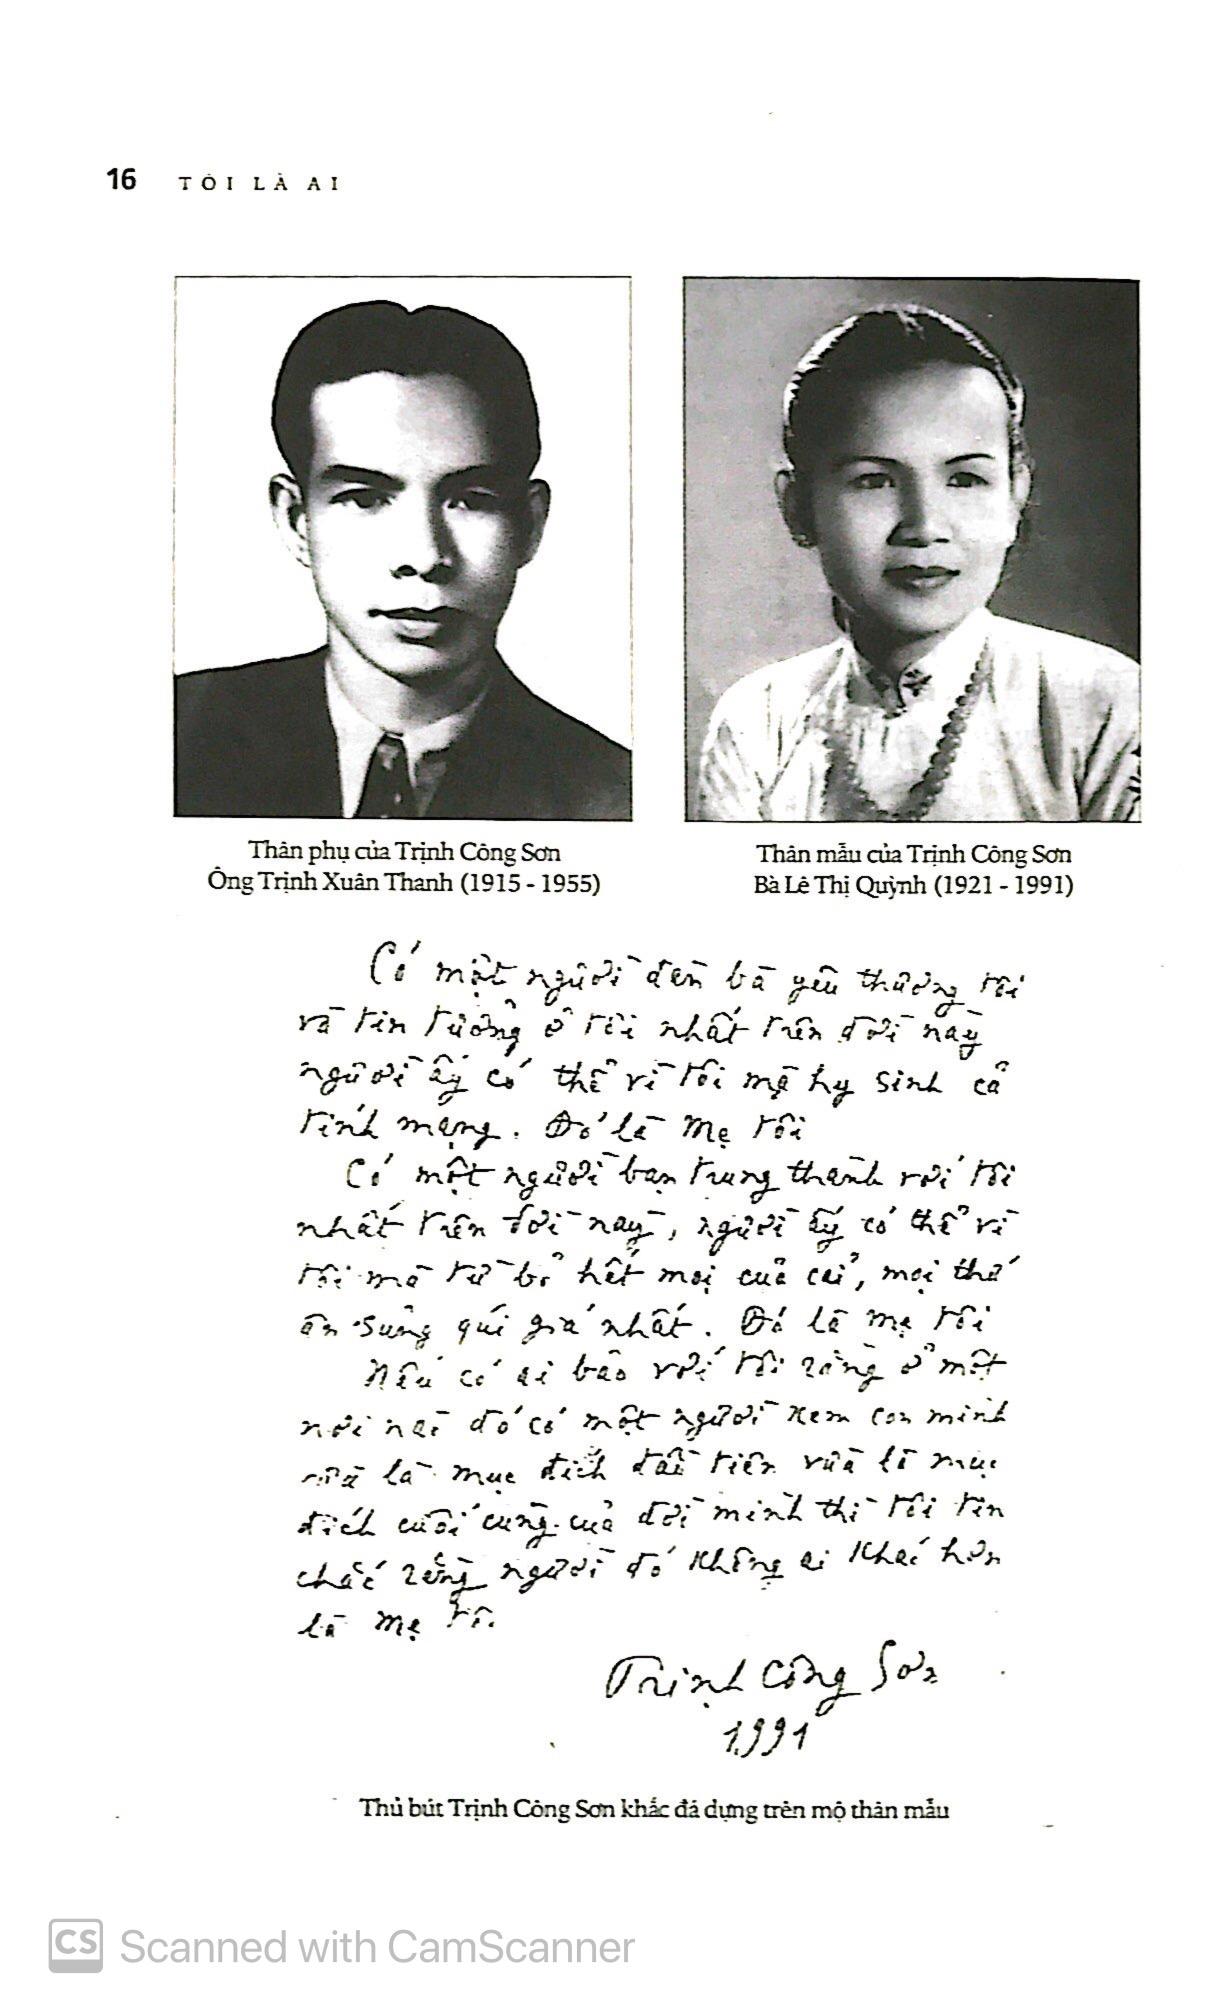 16 TÔI LÀ AI
Thân phụ của Trịnh Công Sơn
Ông Trịnh Xuân Thanh (1915 - 1955)
Thân mẫu của Trịnh Công Sơn
Bà Lê Thị Quỳnh (1921 - 1991)
Có một người đàn bà yêu thương tôi
và tin tưởng ở tôi nhất trên đời này
người ấy có thể vì tôi mà hy sinh cả
tính mạng. Đó là Mẹ tôi
Có một người bạn trung thành với tôi
nhất trên đời này, người ấy có thể vì
tôi mà từ bỏ hết mọi của cải, mọi thứ
ân sủng quí giá nhất. Đó là mẹ tôi
Nếu có ai bảo với tôi rằng ở một
nơi nào đó có một người xem con mình
vừa là mục đích đầu tiên vừa là mục
đích cuối cùng của đời mình thì tôi tin
chắc rằng người đó không ai khác hơn
là mẹ tôi.
Trịnh Công Sơn
1991
Thủ bút Trịnh Công Sơn khắc đá dựng trên mộ thân mẫu
CS Scanned with CamScanner